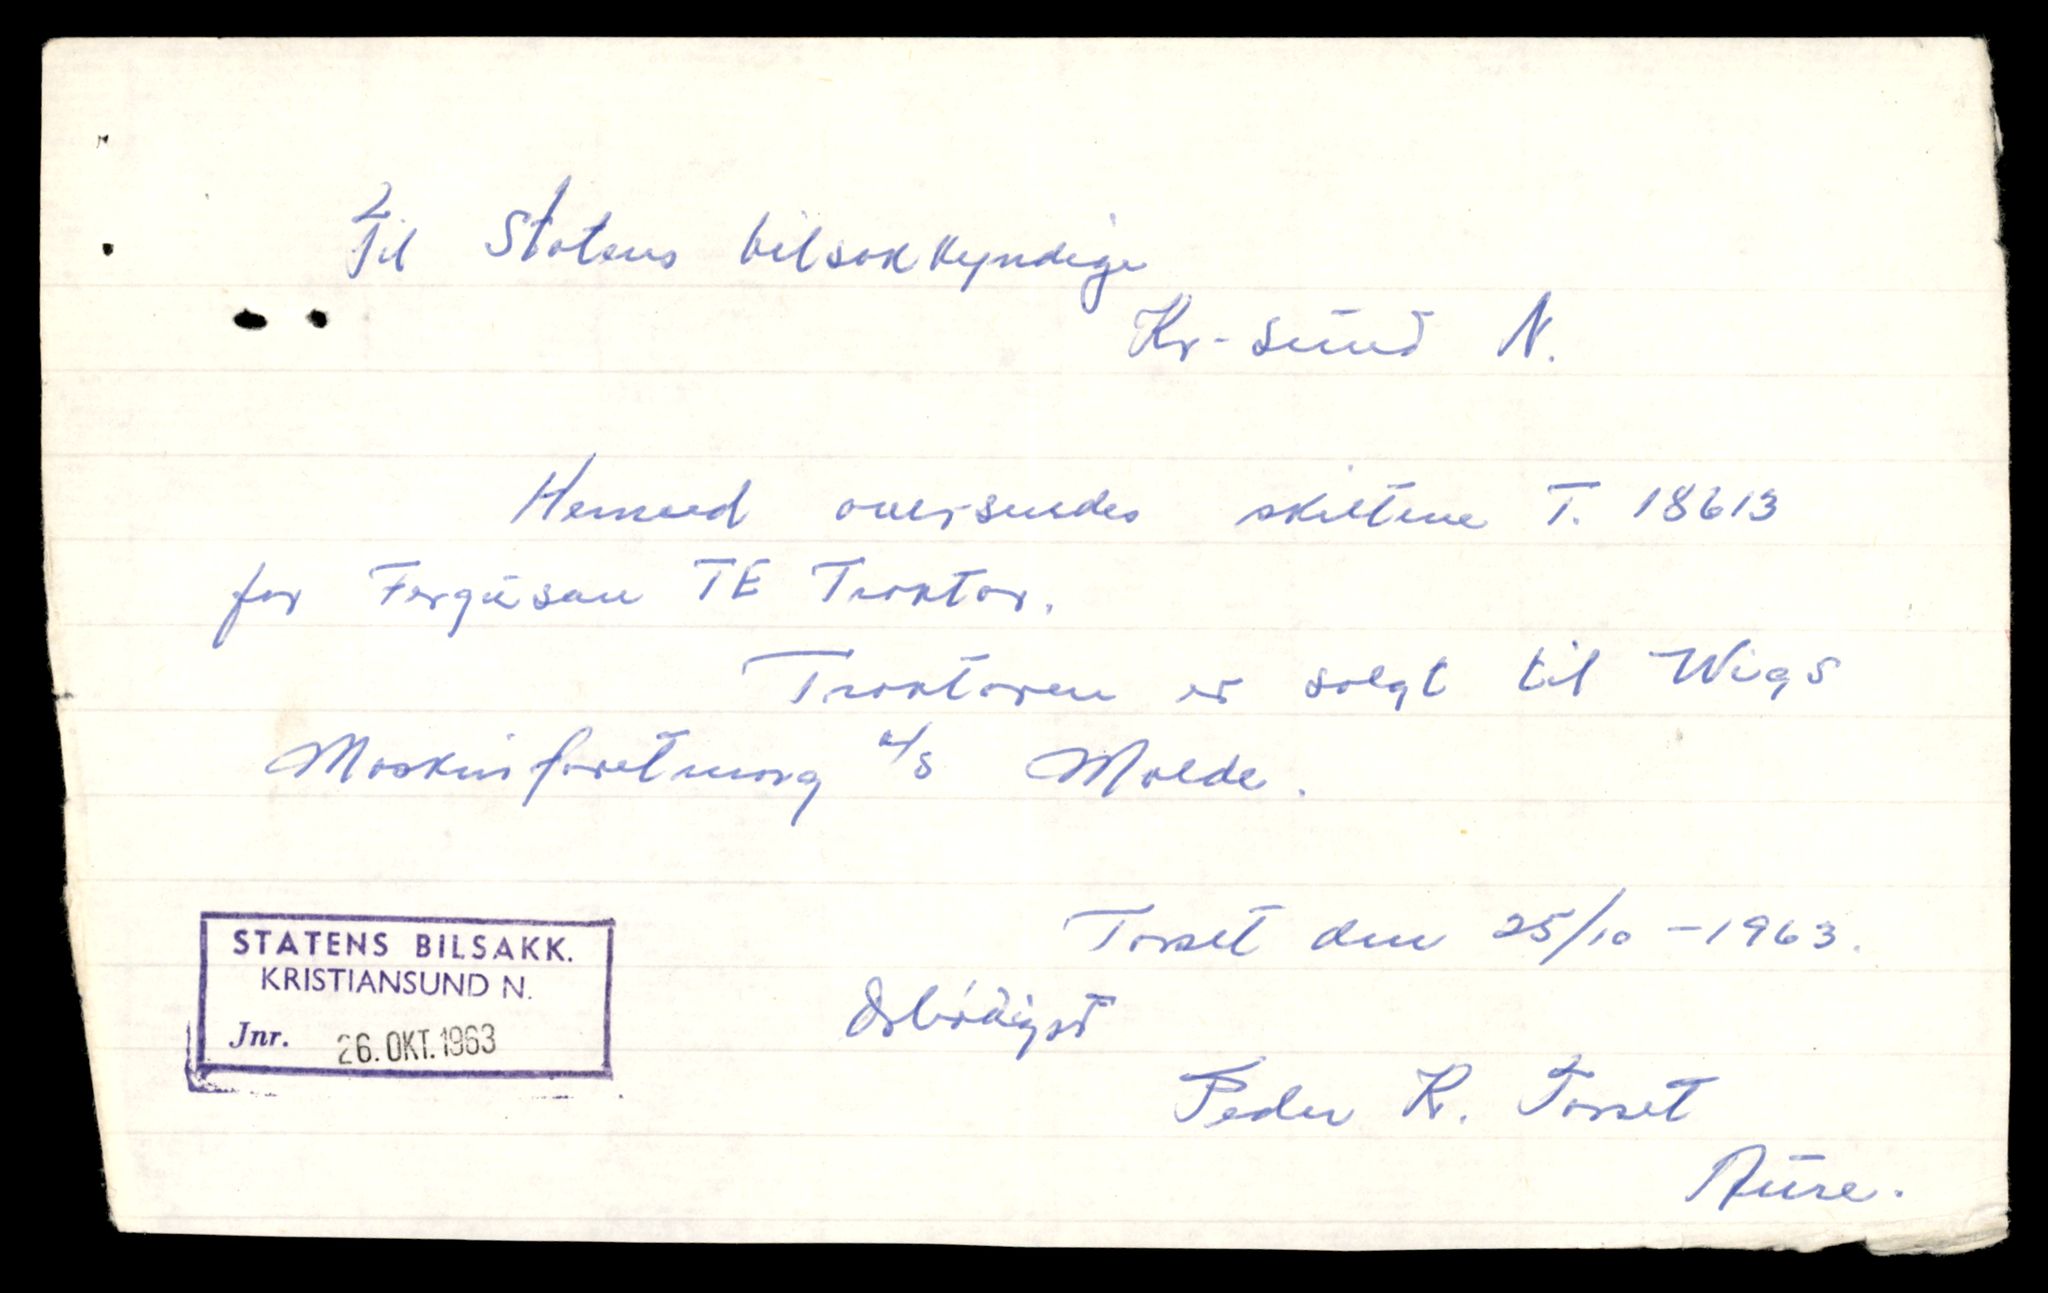 Til Statens bilsakkyndige
Kr-sund N.
Hermed oversendes skiltene T. 18613
for Ferguson TE Traktor.
Traktoren er solgt til Wigs
Maskinforetning A/S Molde.
Torset den 25/10 - 1963.
Ærbødigst
Peder K. Torset
Aure.
STATENS BILSAKK.
KRISTIANSUND N.
Jnr. 26. OKT. 1963